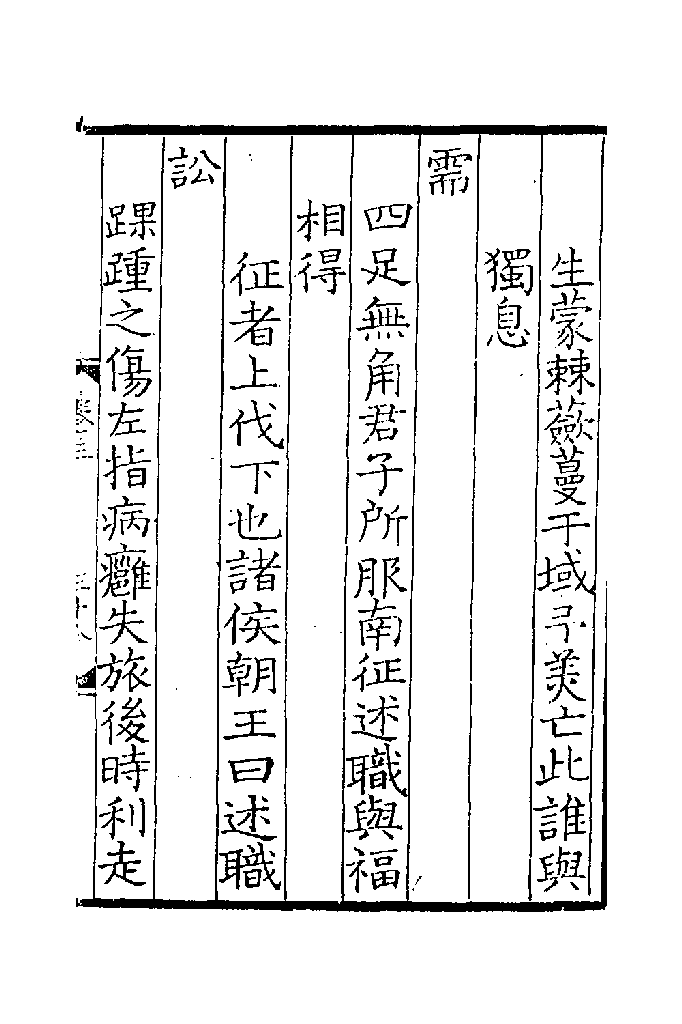 生蒙棘蘞蔓于域予美亡此誰與
獨息
需
四足無角君子所服南征述職與福
相得
征者上伐下也諸侯朝王曰述職
訟
踝踵之傷左指病癰失旅後時利走